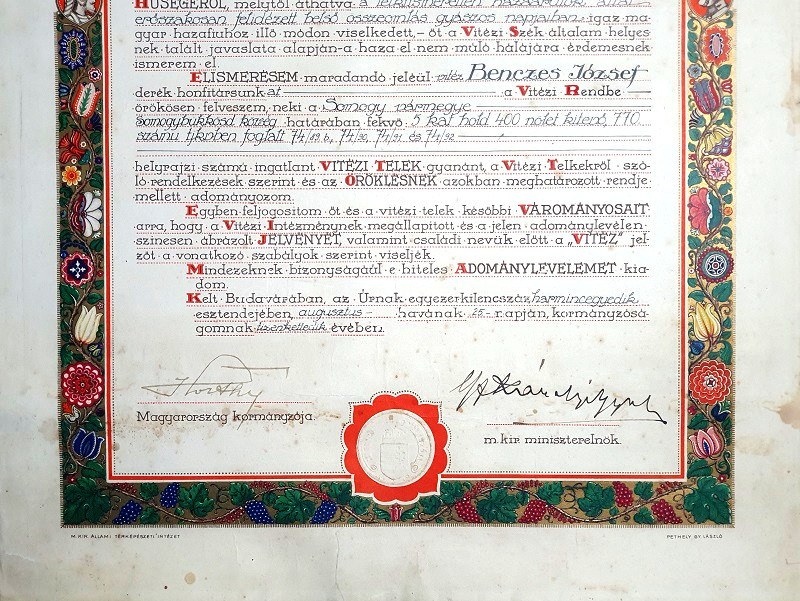 HŰSÉGÉRŐL, melytől áthatva a lelkiismeretlen hazaárulók által
erőszakosan felidézett belső összeomlás gyászos napjaiban, igaz ma-
gyar hazafiúhoz illő módon viselkedett,- őt a Vitézi Szék általam helyes-
nek talált javaslata alapján-a haza el nem múló hálájára érdemesnek
ismerem el.
ELISMERÉSEM maradandó jeléül vitéz Benczes József
derék honfitársunkat a Vitézi Rendbe
örökösen felveszem, neki a Somogy vármegye
Somogybükkösd község határában fekvő 5 kat. hold 400 nöl-et kitevő, 770
számú tjkvben foglalt 74/29 b, 74/30, 74/31 és 74/32
helyrajzi számú ingatlant VITÉZI TELEK gyanánt, a Vitézi Telkekről szó-
ló rendelkezések szerint és az ÖRÖKLÉSNEK azokban meghatározott rendje
mellett adományozom.
Egyben feljogosítom őt és a vitézi telek későbbi VÁROMÁNYOSAIT
arra, hogy a Vitézi Intézménynek megállapított és a jelen adománylevélen
színesen ábrázolt JELVÉNYÉT, valamint családi nevük előtt a „VITÉZ" jel-
zőt a vonatkozó szabályok szerint viseljék.
Mindezeknek bizonyságáúl e hiteles ADOMÁNYLEVELEMET kia-
dom.
Kelt Budavárában, az Úrnak egyezerkilencszáz harmincegyedik
esztendejében, augusztus havának 25-r napján, kormányzósá-
gomnak tizenkettedik évében.
Horthy
Magyarország kormányzója.
m. kir. miniszterelnök.
M. KIR. ÁLLAMI TÉRKÉPÉSZETI INTÉZET
PETHELY GY. LÁSZLÓ